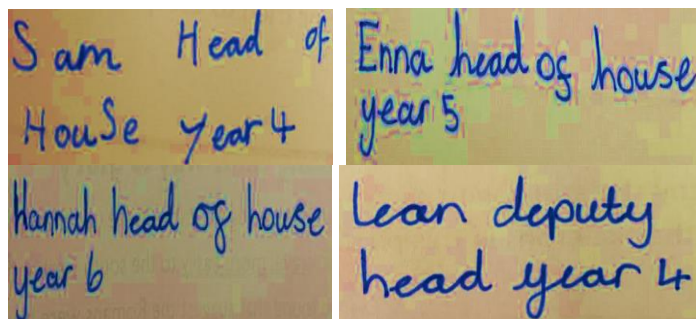 Sam Head of
House year 4
Enna head of house
year 5
Hannah head of house
year 6
Lean deputy
head year 4